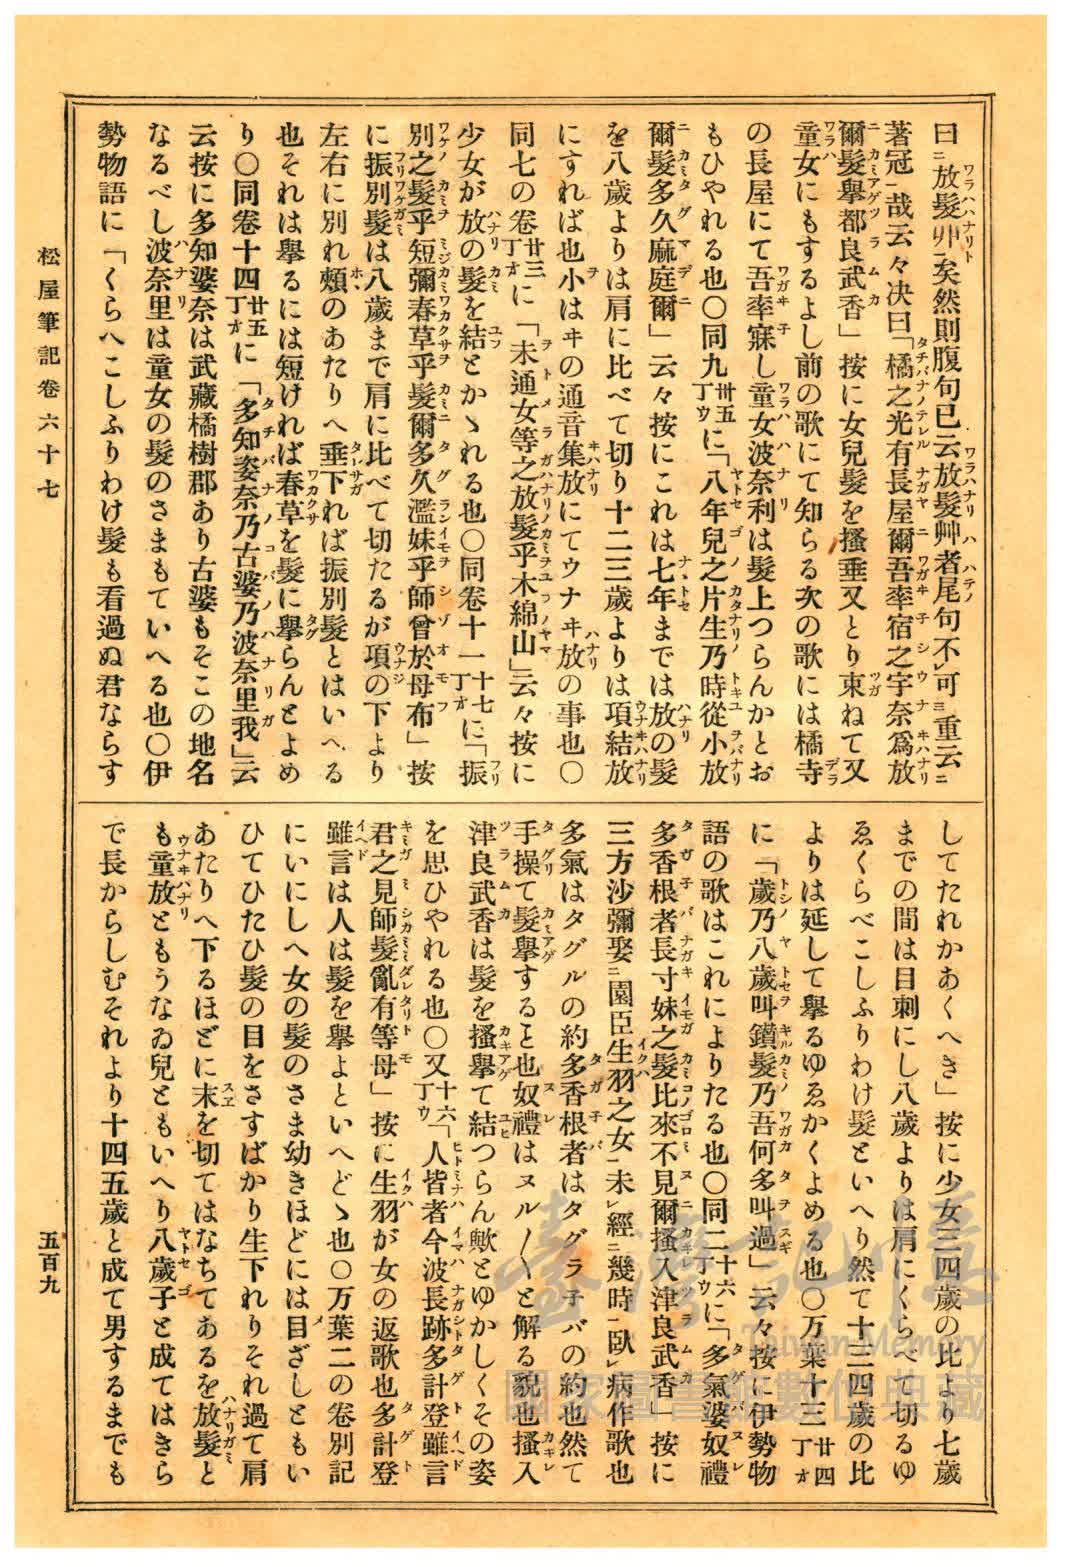 曰ニ放髮丱一矣然則腹句已云放髮艸者尾句不レ可ニ重云ニ
著冠一哉云々决曰「橘之光有長屋爾吾率宿之宇奈爲放
爾髮擧都良武香」按に女兒髮を搔垂又とり束ねて又
童女にもするよし前の歌にて知らる次の歌には橘寺
の長屋にて吾率寐し童女波奈利は髮上つらんかとお
もひやれる也〇同九卅五丁ウに「八年兒之片生乃時從小放
爾髮多久麻庭爾」云々按にこれは七年までは放の髮
を八歲よりは肩に比べて切り十二三歲よりは項結放
にすれば也小はヰの通音集放にてウナヰ放の事也〇
同七の卷廿三丁オに「未通女等之放髮乎木綿山」云々按に
少女が放の髮を結とかゝれる也〇同卷十一十七丁オに「振
別之髮乎短彌春草乎髮爾多久濫妹乎師曾於母布」按
に振別髮は八歲まで肩に比べて切たるが項の下より
左右に別れ頰のあたりへ垂下れば振別髮とはいへる
也それは擧るには短ければ春草を髮に擧らんとよめ
り〇同卷十四廿五丁オに「多知婆奈乃古婆乃波奈里我」云
云按に多知婆奈は武藏橘樹郡あり古婆もそこの地名
なるべし波奈里は童女の髮のさまもていへる也〇伊
勢物語に「くらへこしふりわけ髮も看過ぬ君ならす
してたれかあくへき」按に少女三四歲の比より七歲
までの間は目刺にし八歲よりは肩にくらべて切るゆ
ゑくらべこしふりわけ髮といへり然て十三四歲の比
よりは延して擧るゆゑかくよめる也〇万葉十三廿四丁オ
に「歲乃八歲叫鑽髮乃吾何多叫過」云々按に伊勢物
語の歌はこれによりたる也〇同二十六丁ウに「多氣婆奴禮
多香根者長寸妹之髮比來不見爾搔入津良武香」按に
三方沙彌娶ニ園臣生羽之女一未レ經ニ幾時一臥レ病作歌也
多氣はタグルの約多香根者はタグラ子バの約也然て
手操て髮擧するを也奴禮はヌル〱と解る貌也搔入
津良武香は髮を搔擧て結つらん歟とゆかしくその姿
を思ひやれる也〇又十六丁ウ「人皆者今波長跡多計登雖言
君之見師髮亂有等母」按に生羽が女の返歌也多計登
雖言は人は髮を擧よといへどゝ也〇万葉二の卷別記
にいにしへ女の髮のさま幼きほどには目ざしともい
ひてひたひ髮の目をさすばかり生下れりそれ過て肩
あたりへ下るほどに末を切てはなちてあるを放髮と
も童放ともうなゐ兒ともいへり八歲子と成てはきら
で長からしむそれより十四五歲と成て男するまでも
松屋筆記卷六十七
五百九
臺灣記憶
Taiwan Memory
國家圖書館數位典藏